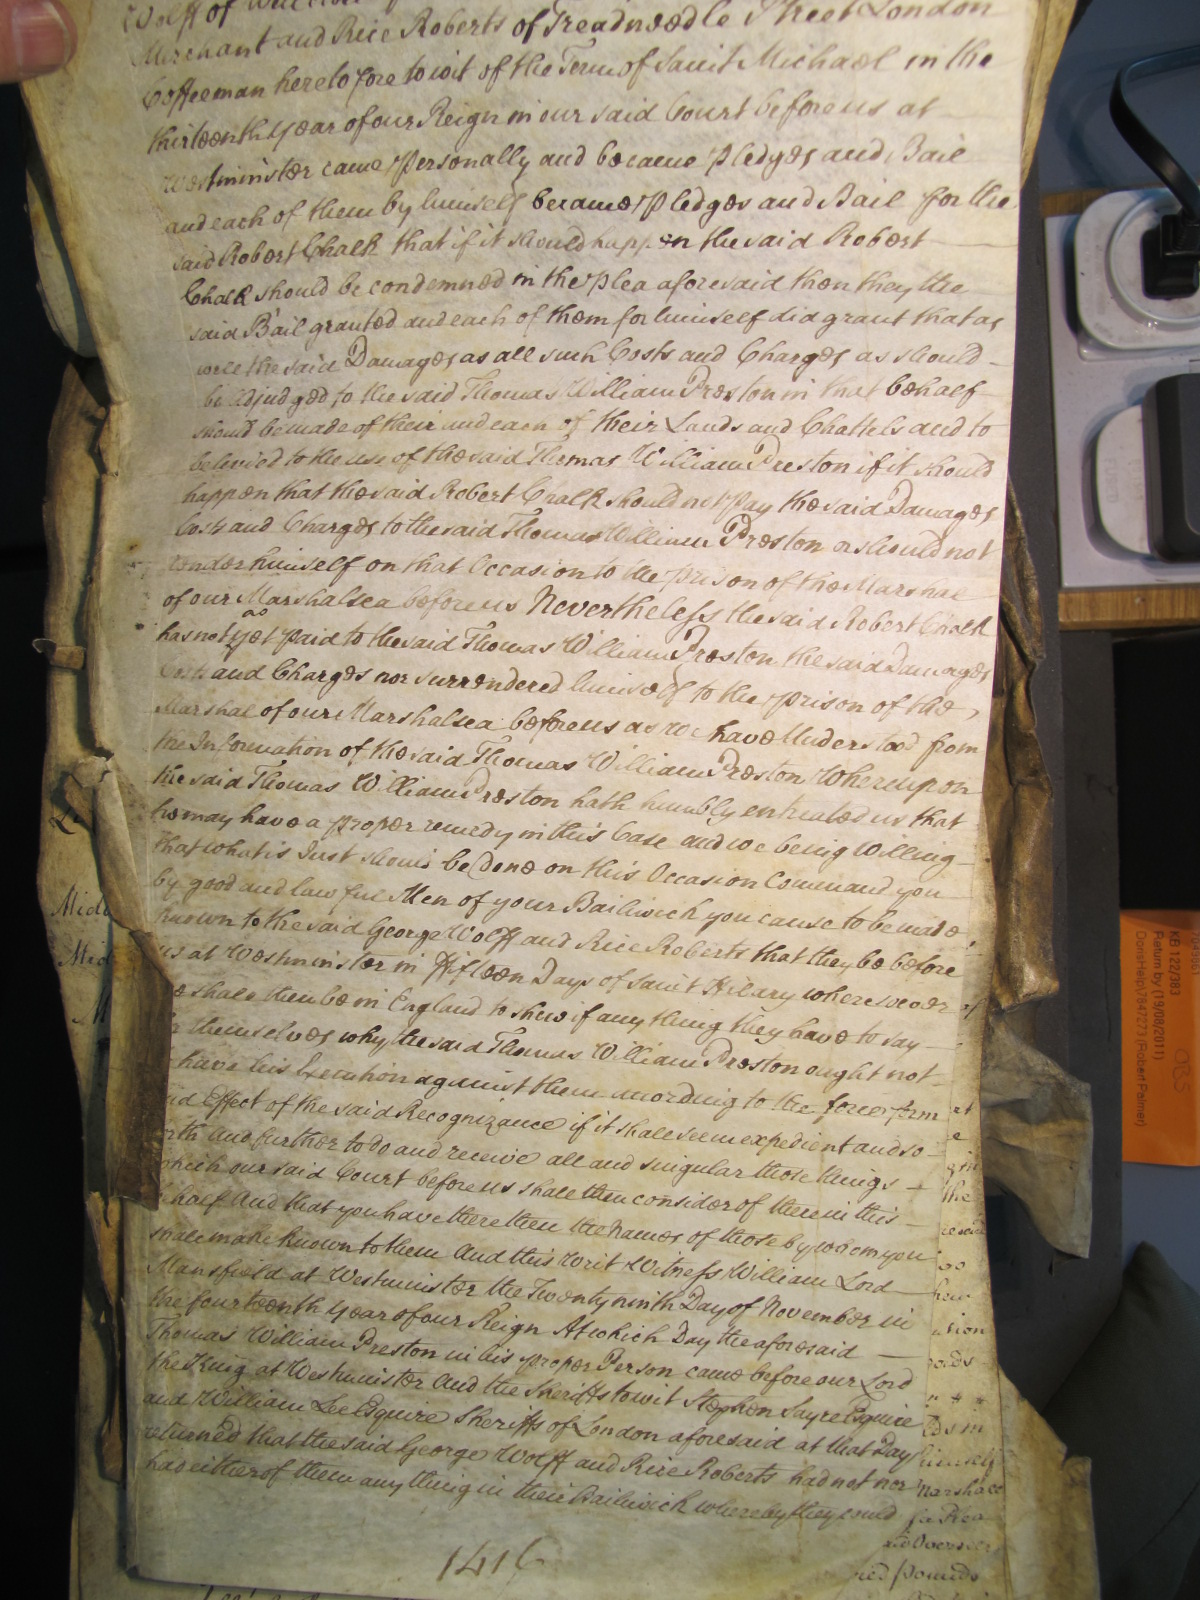 Wolff of
Merchant and Rice Roberts of Treadneedle Street London
Coffeeman heretofore to wit of the Term of Saint Michael in the
thirteenth year of our Reign in our said Court before us at
Westminster came personally and became Pledges and Bail
and each of them by himself became Pledges and Bail for the
said Robert Chalk that if it should happen the said Robert
Chalk should be condemned in the Plea aforesaid then they the
said Bail granted and each of them for himself did grant that as
well the said Damages as all such Costs and Charges as should
be Adjudged to the said Thomas William Preston in that behalf
should be made of their and each of their Lands and Chattels and to
be levied to the use of the said Thomas William Preston if it should
happen that the said Robert Chalk should not Pay the said Damages
Costs and Charges to the said Thomas William Preston or should not
render himself on that Occasion to the prison of the Marshal
of our Marshalsea before us Nevertheless the said Robert Chalk
has not as yet paid to the said Thomas William Preston the said Damages
Costs and Charges nor surrendered himself to the prison of the
Marshal of our Marshalsea before us as we have Understood from
the Information of the said Thomas William Preston Whereupon
the said Thomas William Preston hath humbly entreated us that
he may have a proper remedy in this Case and we being Willing
that what is Just should be done on this Occasion Command you
by good and lawful Men of your Bailiwick you cause to be made
known to the said George Wolff and Rice Roberts that they be before
us at Westminster in Fifteen Days of Saint Hilary wheresoever
we shall then be in England to shew if any thing they have to say
for themselves why the said Thomas William Preston ought not
to have his Execution against them according to the force form
and Effect of the said Recognizance if it shall seem expedient and so
forth And further to do and receive all and singular those things
which our said Court before us shall then consider of them in this
behalf And that you have there then the Names of those by whom you
shall make known to them And this Writ Witness William Lord
Mansfield at Westminster the Twenty ninth Day of November in
the fourteenth Year of our Reign At which Day the aforesaid
Thomas William Preston in his proper Person came before our Lord
the King at Westminster And the Sheriffs to wit Stephen Sayre Esquire
and William Lee Esquire Sheriffs of London aforesaid at that Day
returned that the said George Wolff and Rice Roberts had not nor
had either of them any thing in their Bailiwick whereby they could
1416
Mid
the
himself
Marshal
Pounds
KB 122/383
Return by (19/08/2011)
DorisHelp\7847273 (Robert Palmer)